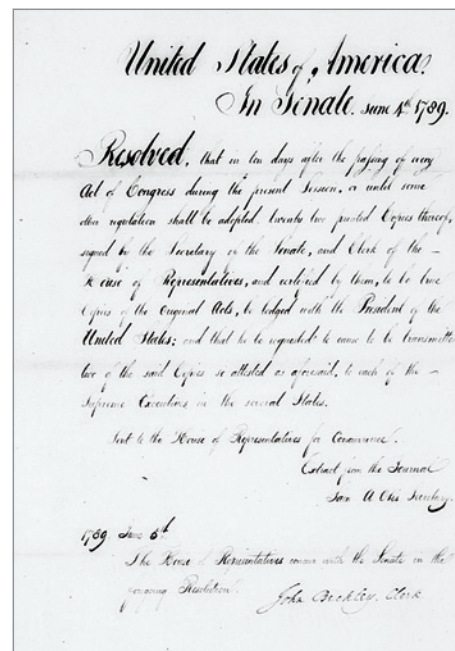 United States of America.
In Senate. June 4th 1789.
Resolved, that in ten days after the passing of every
Act of Congress during the present Session, or until some
other regulation shall be adopted. twenty two printed Copies thereof,
signed by the Secretary of the Senate, and Clerk of the –
House of Representatives, and certified by them, to be true
Copies of the original Acts, be lodged with the President of the
United States; and that he be requested to cause to be transmitted
two of the said Copies so attested as aforesaid, to each of the –
Supreme Executives in the several States.
Sent to the House of Representatives for Concurrence.
Extract from the Journal
Sam A Otis Secretary.
1789. June 5th.
The House of Representatives concur with the Senate in the
foregoing Resolution.
John Beckley, Clerk